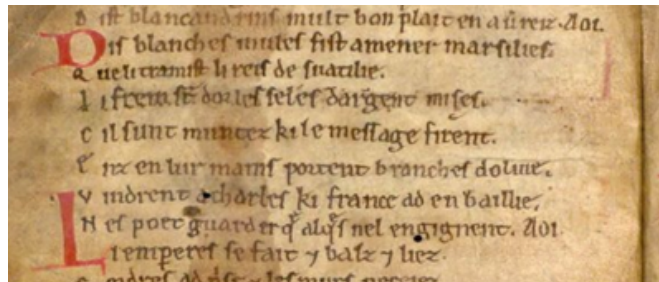 D ist blancandrins mult bon plait en aurez. Aoi.
Dis blanches mules fist amener marsilies.
Q ue li tramist li reis de suatilie.
L i frein st dor les seles dargent mises.
C il sunt muntez ki le message firent.
E nz en lur mains portent branches dolive.
V indrent a charles ki france ad en baillie.
N es poet guarder q̄ alq̄s nel engignent. Aoi.
Li emperes se fait ⁊ balz ⁊ liez.